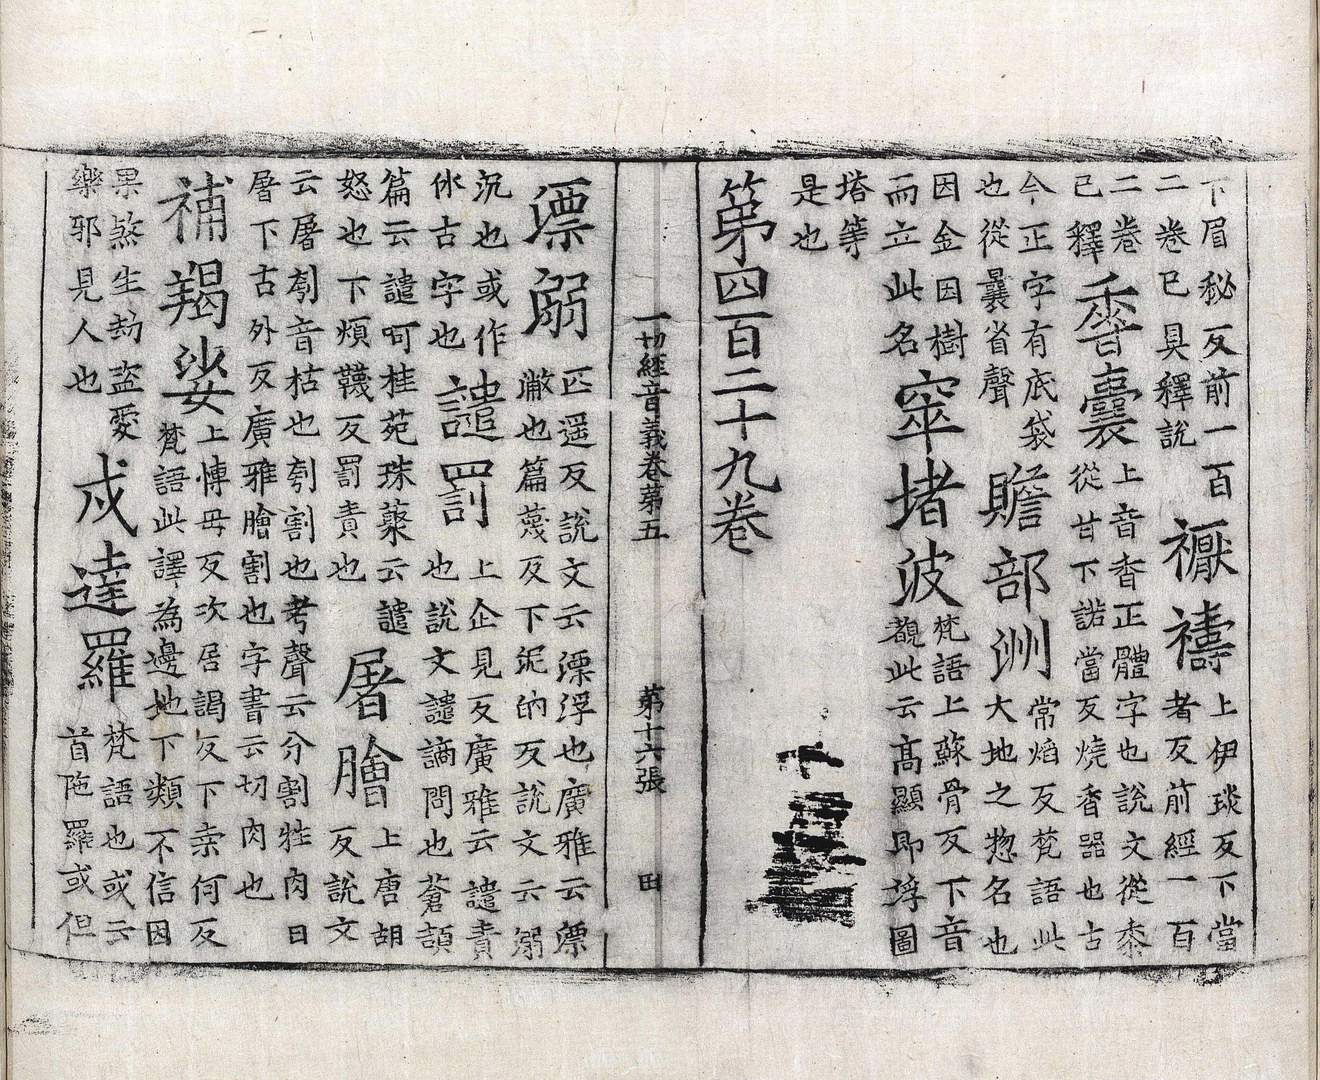 下眉秘反前一百
二卷已具釋說
𥜒禱
上伊琰反下當
者反前經一百
二卷
已釋
香囊
上音香正體字也說文從黍
從甘下諾當反燒香器也古
今正字有底袋
也從㯻省聲
贍部洲
常焰反梵語此
大地之惣名也
因金因樹
而立此名
窣堵波
梵語上蘇骨反下音
覩此云高顯即浮圖
塔等
是也
第四百二十九卷
一切經音義卷第五 第十六張 田
漂溺
匹遥反說文云漂浮也廣雅云漂
潎也篇蔑反下泥的反說文云溺
沉也或作
㲻古字也
譴罰
上企見反廣雅云譴責
也說文譴謫問也蒼頡
篇云譴呵桂苑珠藂云譴
怒也下煩韈反罰責也
屠膾
上唐胡
反說文
云屠刳音枯也刳割也考聲云分割牲肉曰
屠下古外反廣雅膾割也字書云切肉也
補羯娑
上博毋反次居謁反下亲何反
梵語此譯為邊地下類不信因
果煞生劫盗愛
樂邪見人也
戍達羅
梵語也或云
首陁羅或但